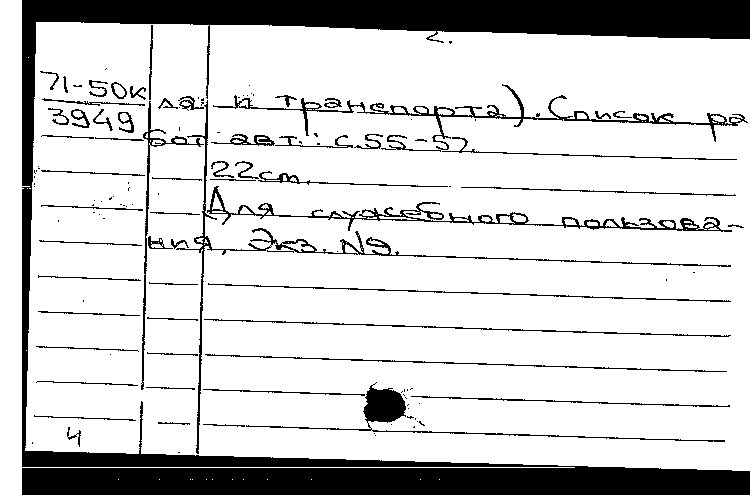 2.
71-50к
3949
ла и транспорта). Список ра
бот авт.: с.55-57.
22см.
Для служебного пользова-
ния. Экз. №9.
4